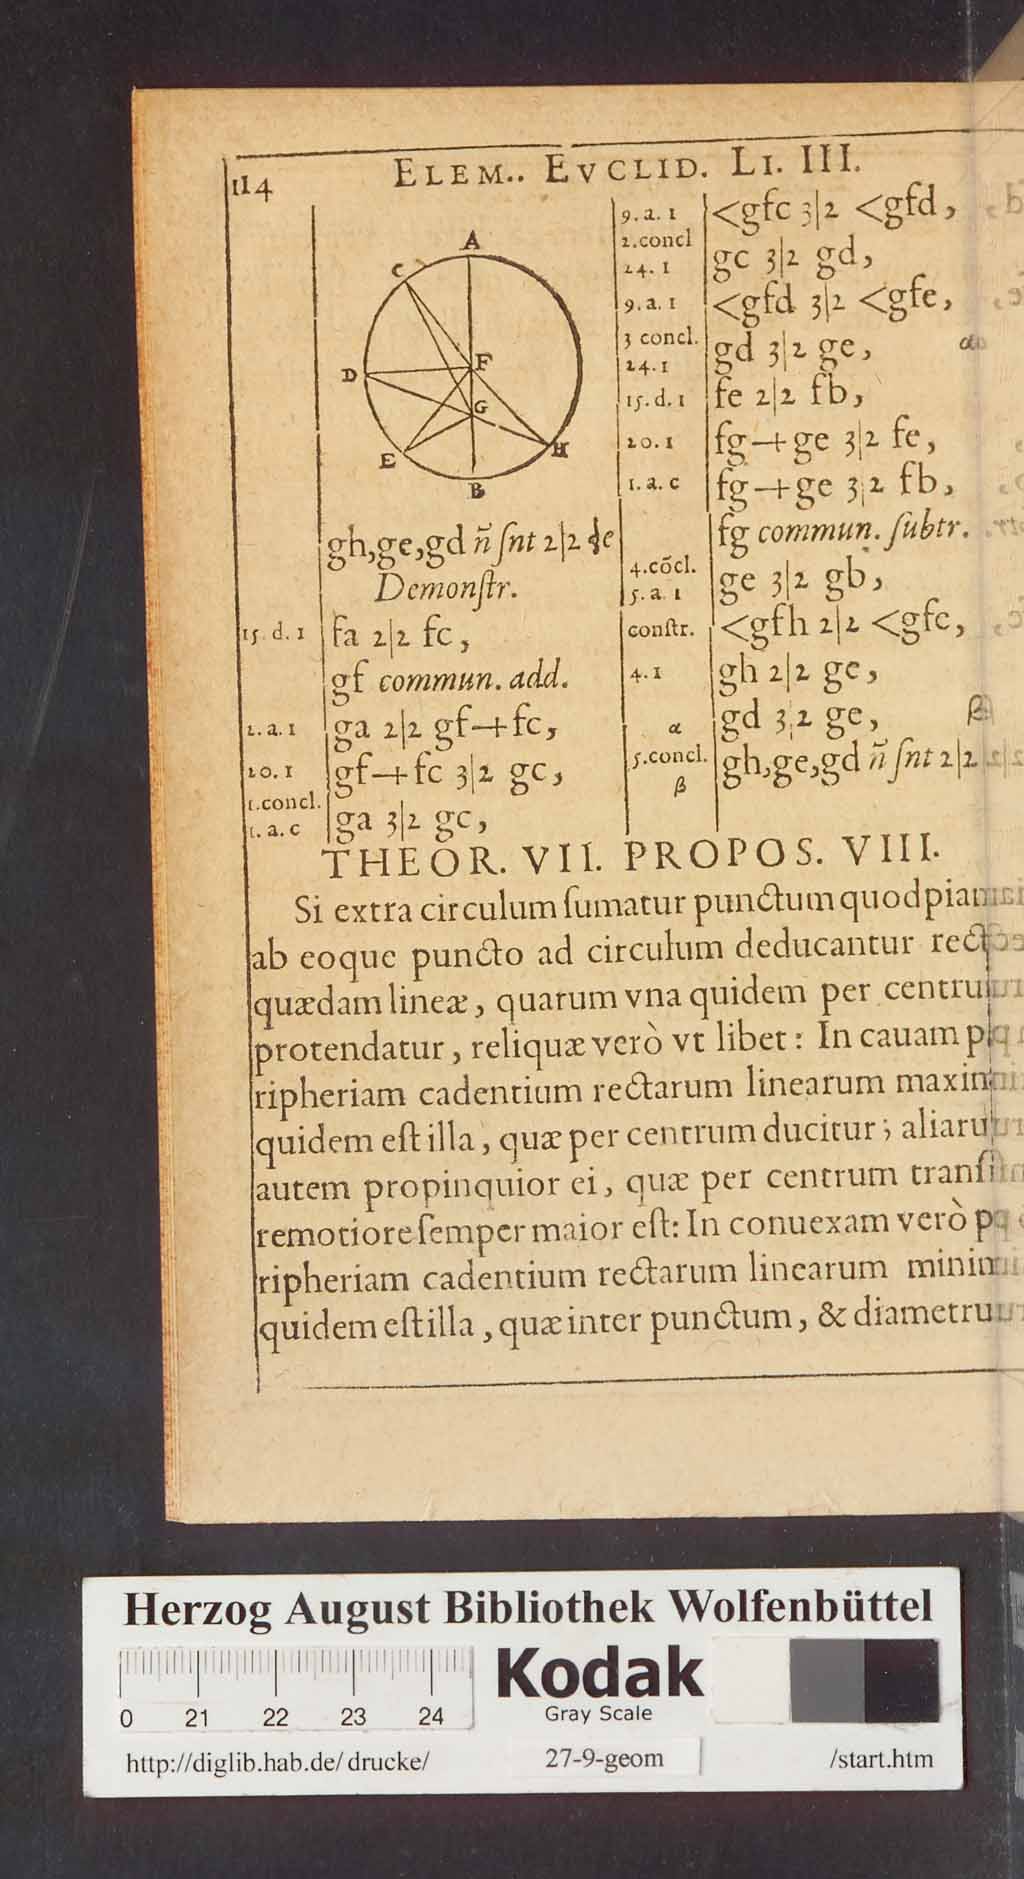 114
ELEM.. EVCLID. LI. III.
A
C
F
D
G
E
H
B
gh,ge,gd ñ ſnt 2|2 de
Demonſtr.
15. d. 1 fa 2|2 fc,
gf commun. add.
2. a. 1 ga 2|2 gf-+fc,
20. 1 gf-+fc 3|2 gc,
1.concl.
1. a. c ga 3|2 gc,
9. a. 1 <gfc 3|2 <gfd,
2.concl
24. 1 gc 3|2 gd,
9. a. 1 <gfd 3|2 <gfe,
3 concl.
24. 1 gd 3|2 ge, α
15. d. 1 fe 2|2 fb,
20. 1 fg-+ge 3|2 fe,
1. a. c fg-+ge 3|2 fb,
fg commun. ſubtr.
4.cõcl.
5. a 1 ge 3|2 gb,
conſtr. <gfh 2|2 <gfe,
4. 1 gh 2|2 ge,
α gd 3|2 ge, β
5.concl. gh,ge,gd ñ ſnt 2|2
β
THEOR. VII. PROPOS. VIII.
Si extra circulum ſumatur punctum quodpiam
ab eoque puncto ad circulum deducantur rect
quædam lineæ, quarum vna quidem per centru
protendatur, reliquæ verò vt libet: In cauam p
ripheriam cadentium rectarum linearum maxim
quidem eſt illa, quæ per centrum ducitur; aliaru
autem propinquior ei, quæ per centrum tranſi
remotiore ſemper maior eſt: In conuexam verò p
ripheriam cadentium rectarum linearum minim
quidem eſt illa, quæ inter punctum, & diametru
Herzog August Bibliothek Wolfenbüttel
Kodak
Gray Scale
0 21 22 23 24
http://diglib.hab.de/drucke/ 27-9-geom /start.htm